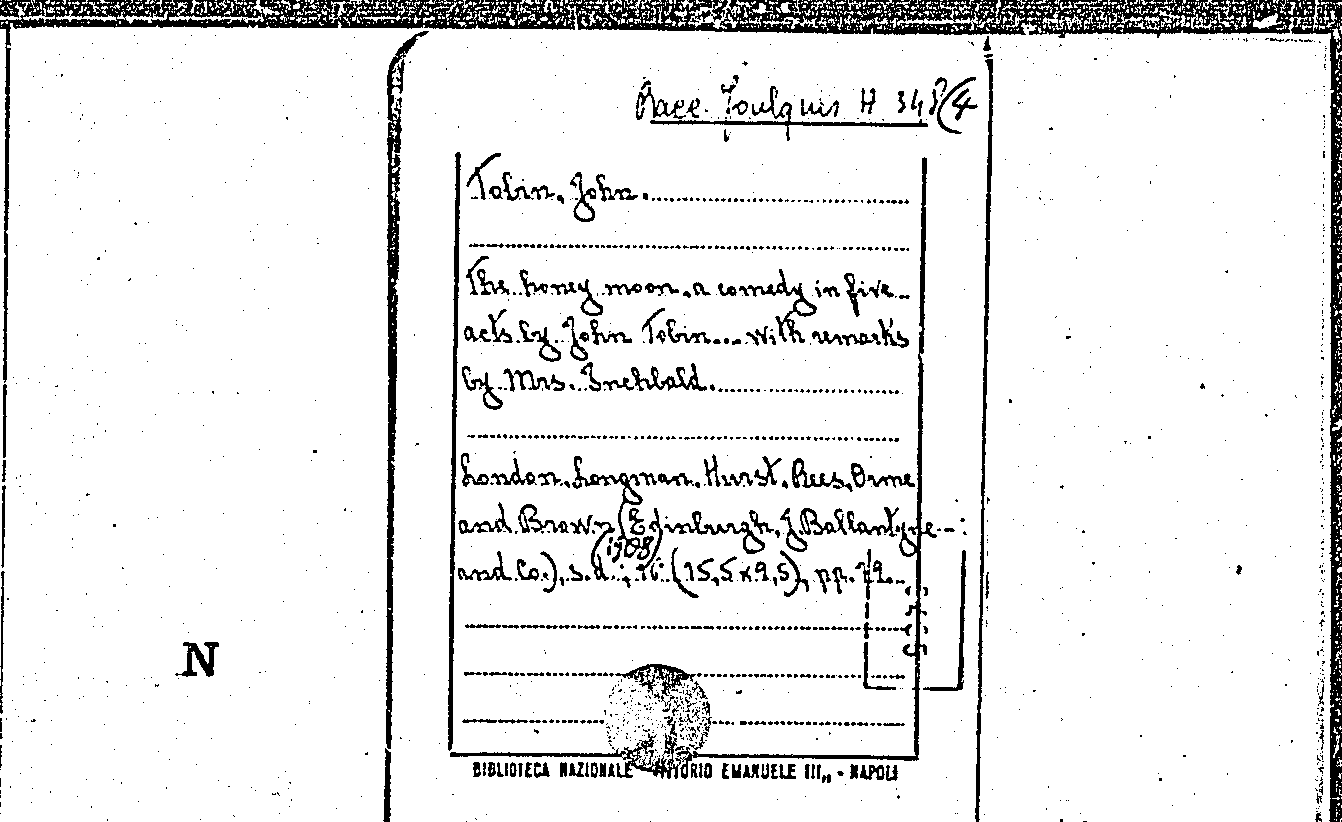 Racc. Foulquis H 348(4
Tobin, John.
The honey moon, a comedy in five
acts by John Tobin... with remarks
by Mrs. Inchbald.
London, Longman, Hurst, Rees, Orme
and Brown (Edinburgh, J. Ballantyne
(1908)
and Co.), s.d., 16° (15,5x9,5), pp. 72.
N
BIBLIOTECA NAZIONALE VITTORIO EMANUELE III„ - NAPOLI